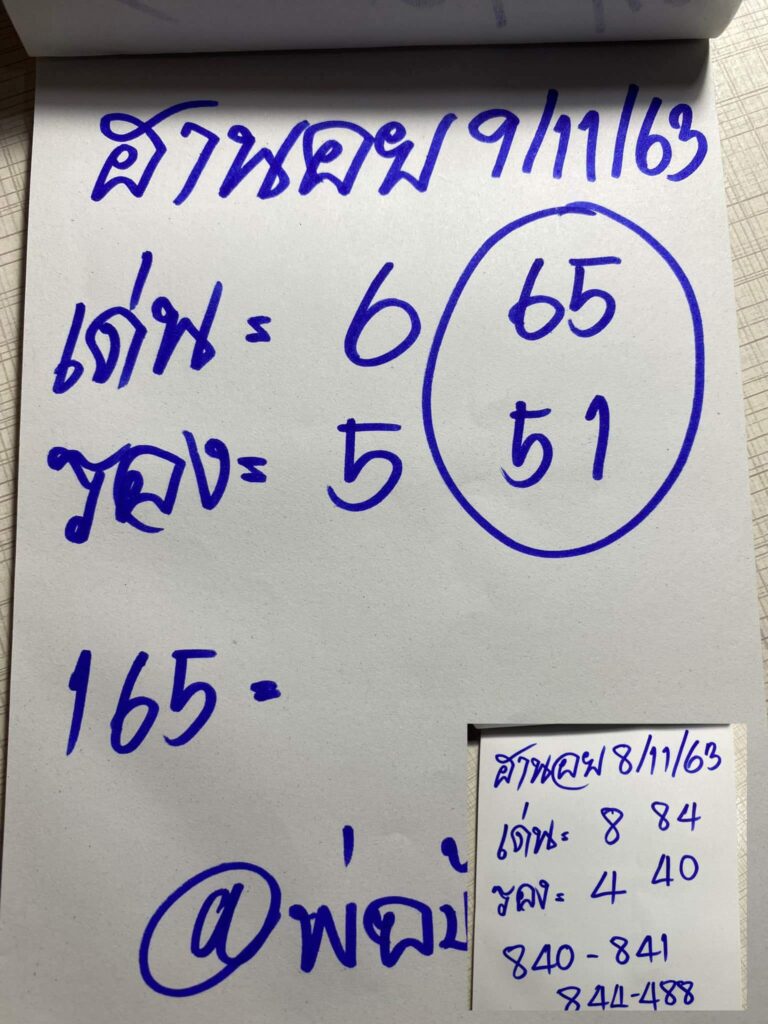 ฮานอย 9/11/63
เด่น = 6 65
รอง = 5 51
165 =
@พ่อ
ฮานอย 8/11/63
เด่น = 8 84
รอง = 4 40
840 - 841
844-488